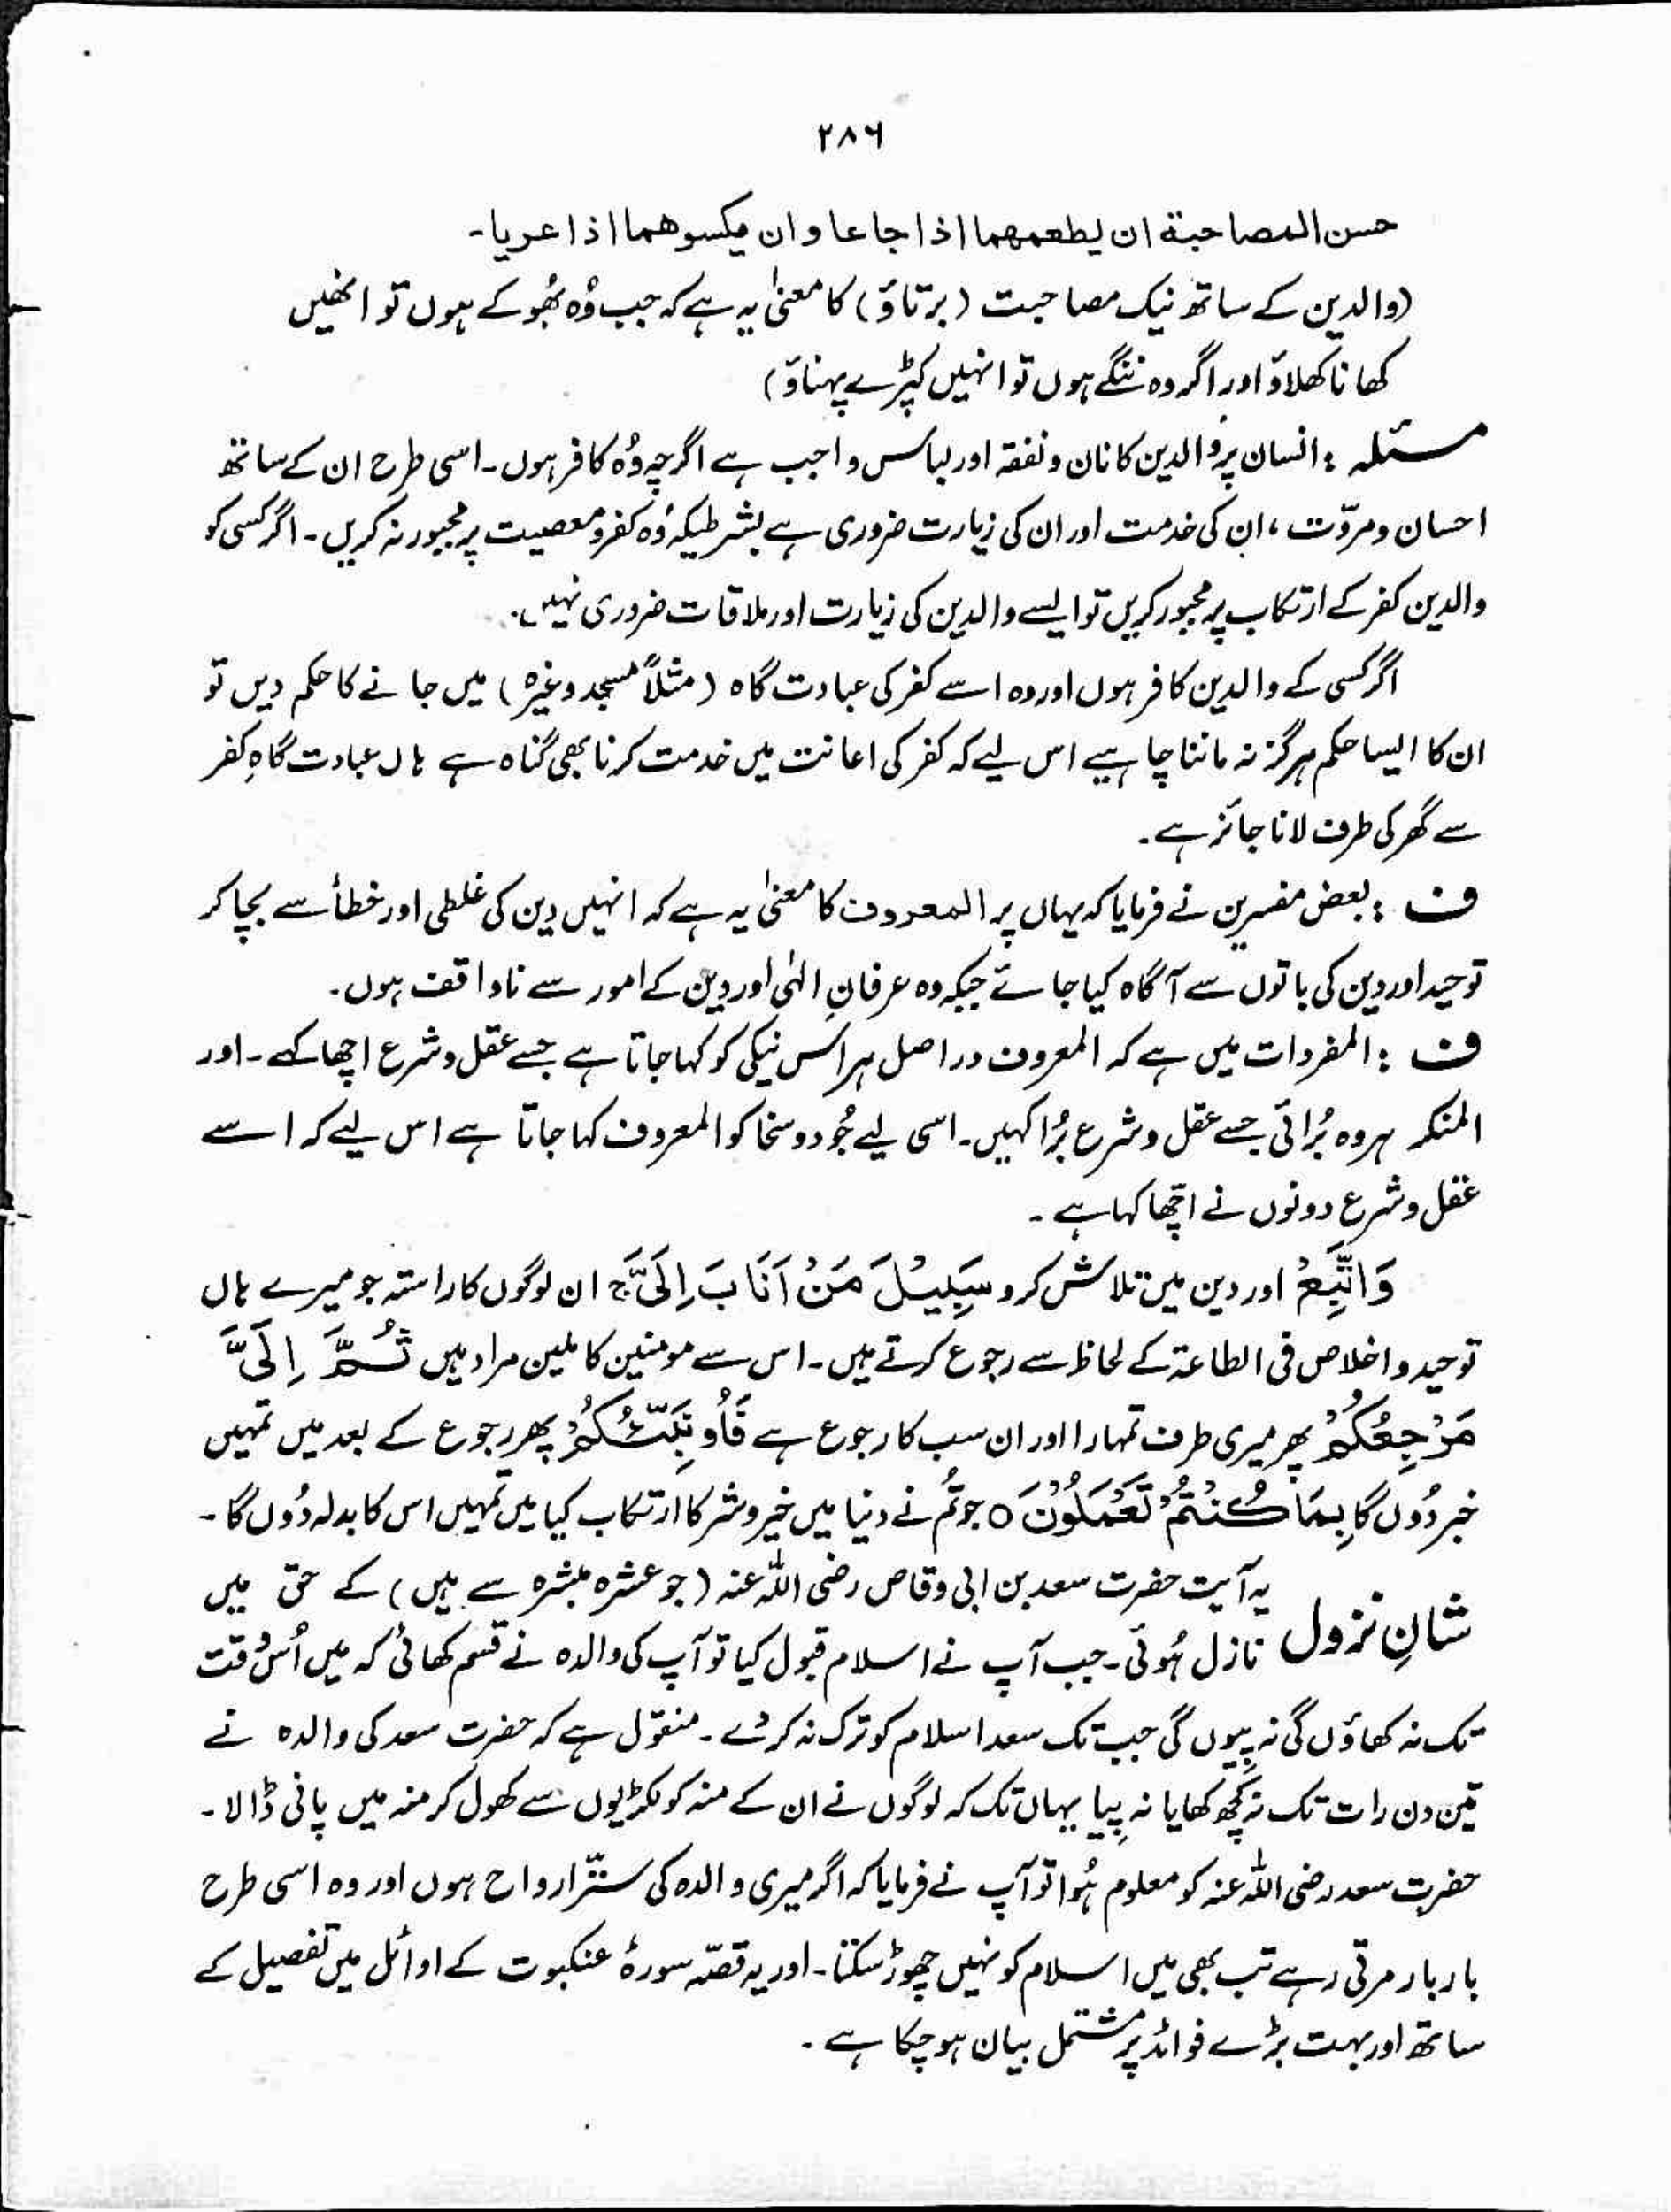 ۲۸۶
حسن المصاحبة ان یطعمهما اذا جاعا وان یکسوهما اذا عریا۔
(والدین کے ساتھ نیک مصاحبت (برتاؤ) کا معنیٰ یہ ہے کہ جب وُہ بھُوکے ہوں تو انھیں
کھانا کھلاؤ اور اگر وہ ننگے ہوں تو انہیں کپڑے پہناؤ)
مسئلہ : انسان پر والدین کا نان و نفقہ اور لباس واجب ہے اگرچہ وُہ کافر ہوں۔ اسی طرح ان کے ساتھ
احسان و مروّت، ان کی خدمت اور ان کی زیارت ضروری ہے بشرطیکہ وُہ کفر و معصیت پر مجبور نہ کریں۔ اگر کسی کو
والدین کفر کے ارتکاب پر مجبور کریں تو ایسے والدین کی زیارت اور ملاقات ضروری نہیں۔
اگر کسی کے والدین کافر ہوں اور وہ اسے کفر کی عبادت گاہ (مثلاً مسجد وغیرہ) میں جانے کا حکم دیں تو
ان کا ایسا حکم ہرگز نہ ماننا چاہیے اس لیے کہ کفر کی اعانت میں خدمت کرنا بھی گناہ ہے ہاں عبادت گاہِ کفر
سے گھر کی طرف لانا جائز ہے۔
ف : بعض مفسرین نے فرمایا کہ یہاں پر المعروف کا معنیٰ یہ ہے کہ انہیں دین کی غلطی اور خطأ سے بچا کر
توحید اور دین کی باتوں سے آگاہ کیا جائے جبکہ وہ عرفانِ الٰہی اور دین کے امور سے ناواقف ہوں۔
ف : المفردات میں ہے کہ المعروف دراصل ہر اس نیکی کو کہا جاتا ہے جسے عقل و شرع اچھا کہے۔ اور
المنکر ہر وہ بُرائی جسے عقل و شرع بُرا کہیں۔ اسی لیے جُود و سخا کو المعروف کہا جاتا ہے اس لیے کہ اسے
عقل و شرع دونوں نے اچّھا کہا ہے۔
وَاتَّبِعْ اور دین میں تلاش کرو سَبِیْلَ مَنْ اَنَابَ اِلَیَّ ج ان لوگوں کا راستہ جو میرے ہاں
توحید و اخلاص فی الطاعۃ کے لحاظ سے رجوع کرتے ہیں۔ اس سے مومنین کاملین مراد ہیں ثُمَّ اِلَیَّ
مَرْجِعُکُمْ پھر میری طرف تمہارا اور ان سب کا رجوع ہے فَاُونَبِّئُکُمْ پھر رجوع کے بعد میں تمہیں
خبر دُوں گا بِمَا کُنْتُمْ تَعْمَلُوْنَ ٥ جو تُم نے دنیا میں خیر و شر کا ارتکاب کیا میں تمہیں اس کا بدلہ دُوں گا۔
شانِ نزول یہ آیت حضرت سعد بن ابی وقاص رضی اللہ عنہ (جو عشرہ مبشرہ سے ہیں) کے حق میں
نازل ہُوئی۔ جب آپ نے اسلام قبول کیا تو آپ کی والدہ نے قسم کھائی کہ میں اُس وقت
تک نہ کھاؤں گی نہ پِیوں گی جب تک سعد اسلام کو ترک نہ کر دے۔ منقول ہے کہ حضرت سعد کی والدہ نے
تین دن رات تک نہ کچھ کھایا نہ پِیا یہاں تک کہ لوگوں نے ان کے منہ کو لکڑیوں سے کھول کر منہ میں پانی ڈالا۔
حضرت سعد رضی اللہ عنہ کو معلوم ہُوا تو آپ نے فرمایا کہ اگر میری والدہ کی ستّر ارواح ہوں اور وہ اسی طرح
بار بار مرتی رہے تب بھی میں اسلام کو نہیں چھوڑ سکتا۔ اور یہ قصّہ سورۂ عنکبوت کے اوائل میں تفصیل کے
ساتھ اور بہت بڑے فوائد پر مشتمل بیان ہو چکا ہے۔